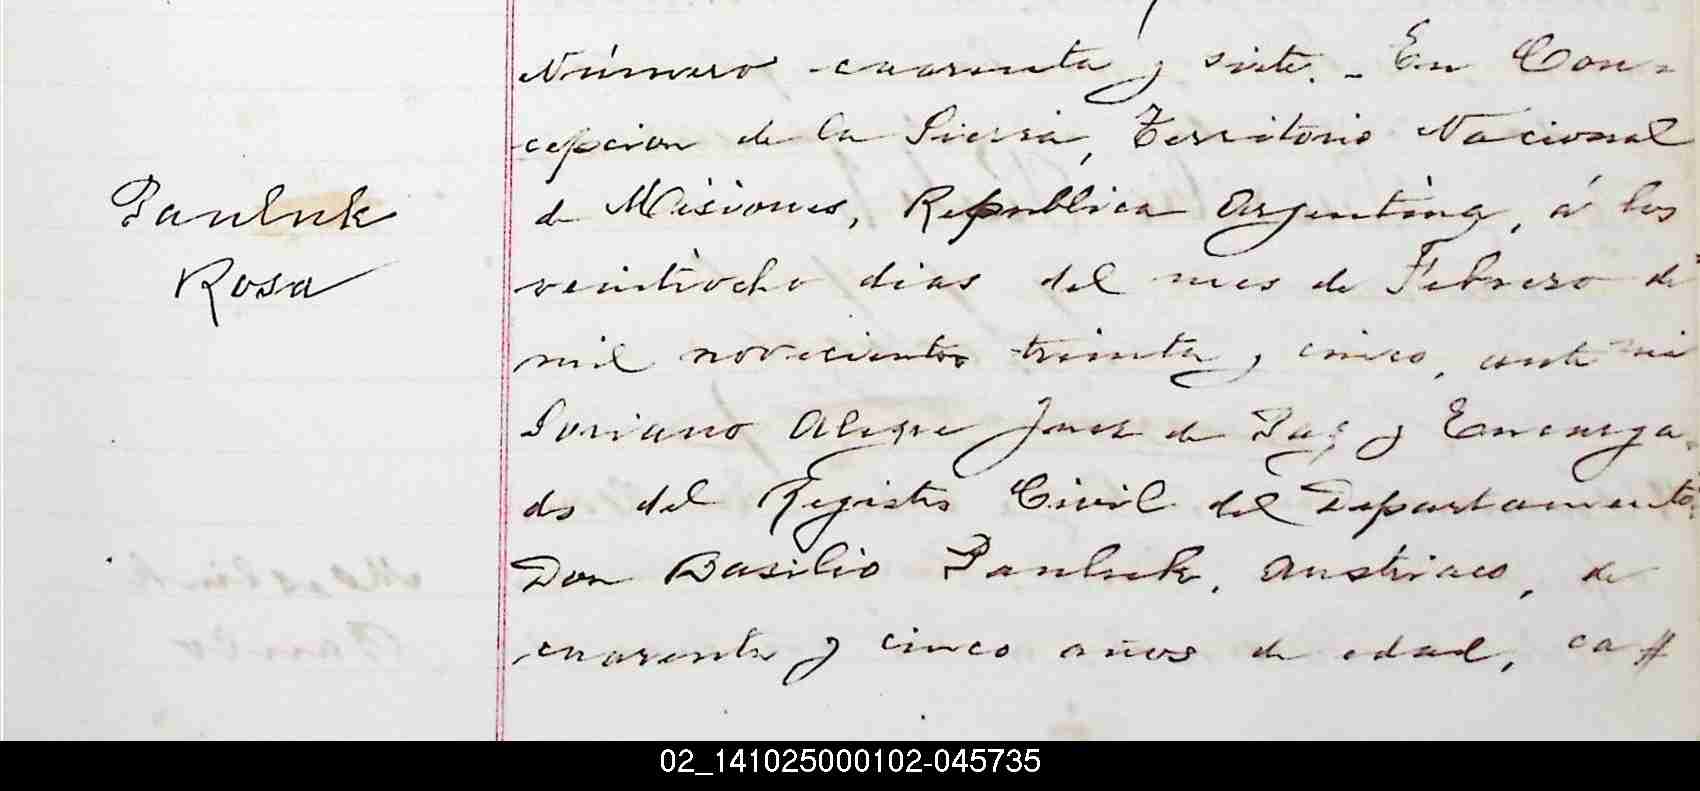 Pauluk
Rosa
Número cuarenta y siete. - En Con-
cepcion de la Sierra, Territorio Nacional
de Misiones, Republica Argentina, á los
veintiocho dias del mes de Febrero de
mil novecientos treinta y cinco, ante mi
Soriano Alegre Juez de Paz y Encarga-
do del Registro Civil del Departamento,
Don Basilio Pauluk, Austriaco, de
cuarenta y cinco años de edad, ca//
02_141025000102-045735